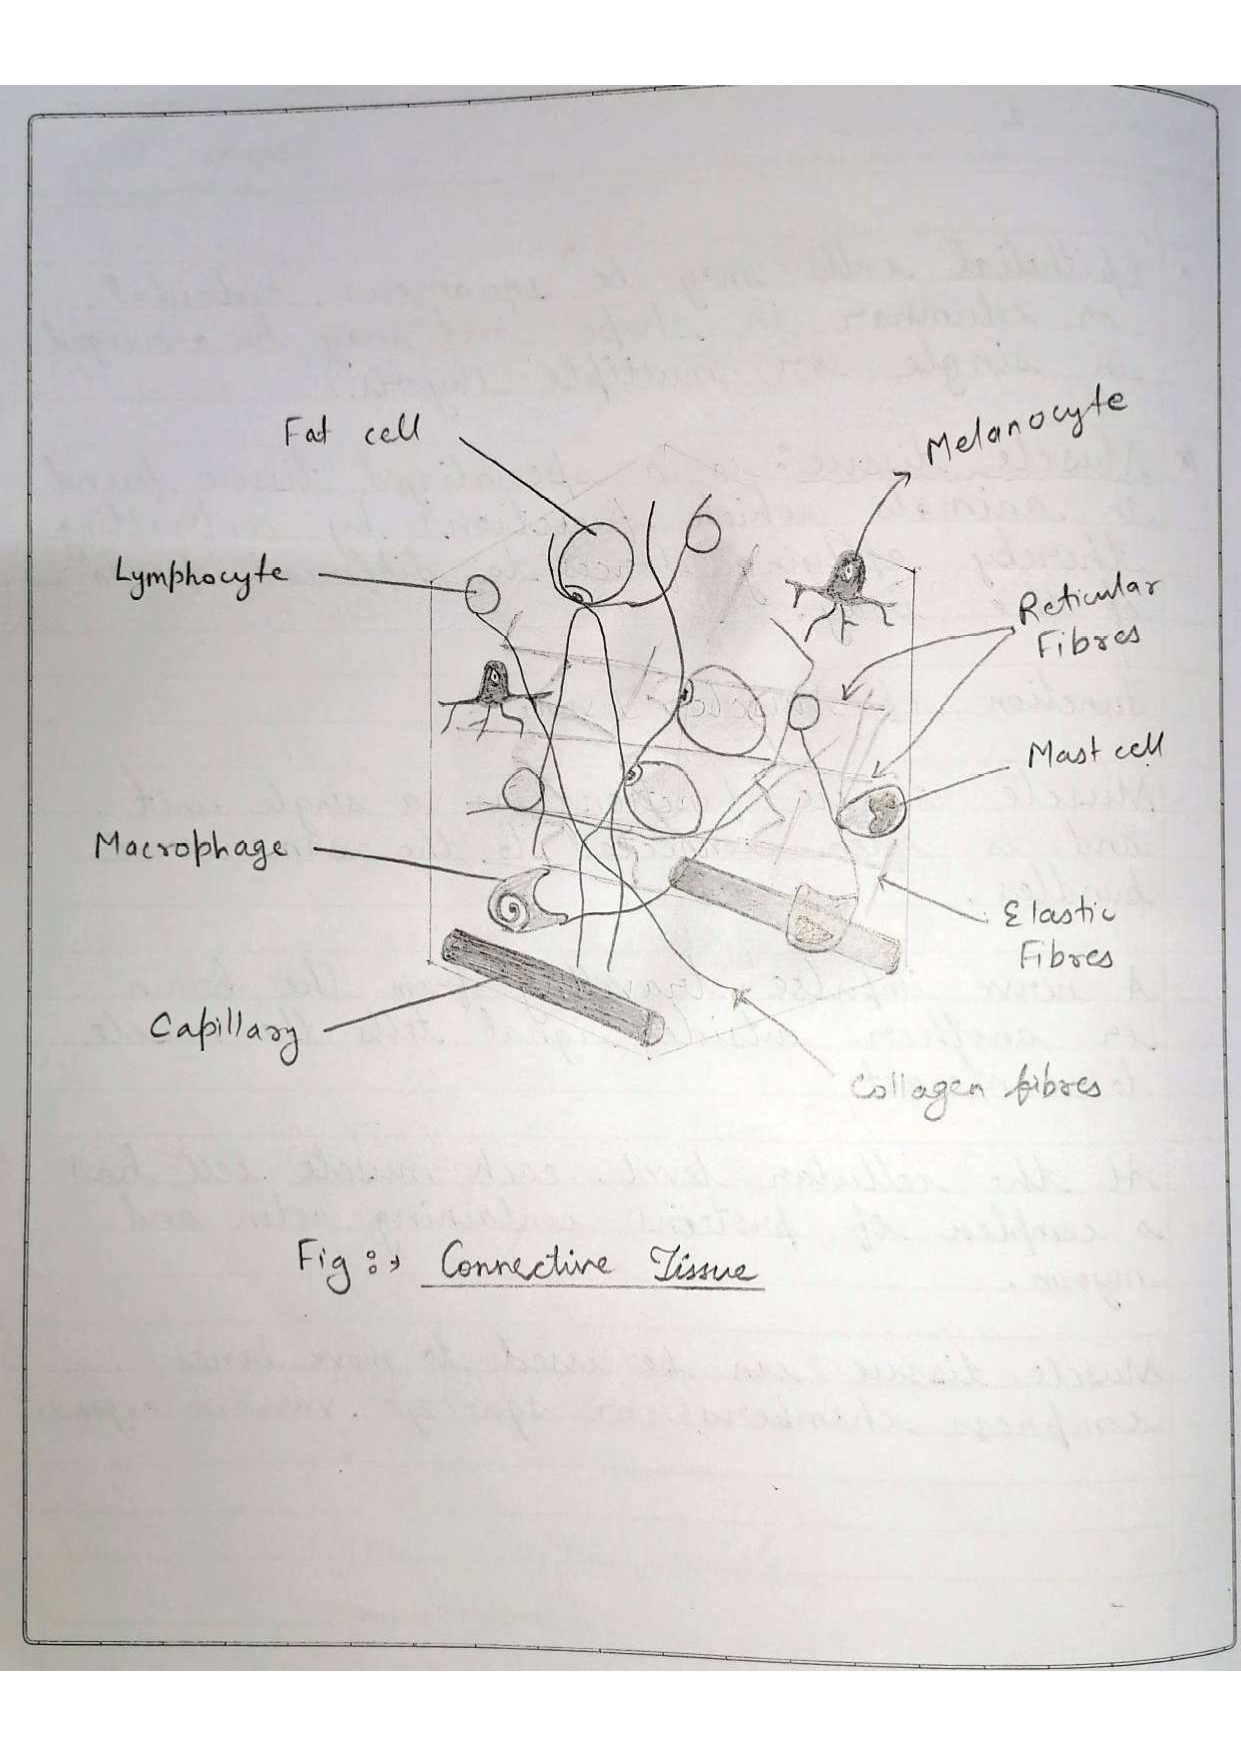 Fat cell
Melanocyte
Lymphocyte
Reticular
Fibres
Mast cell
Macrophage
Elastic
Fibres
Capillary
Collagen fibres
Fig :→ Connective Tissue